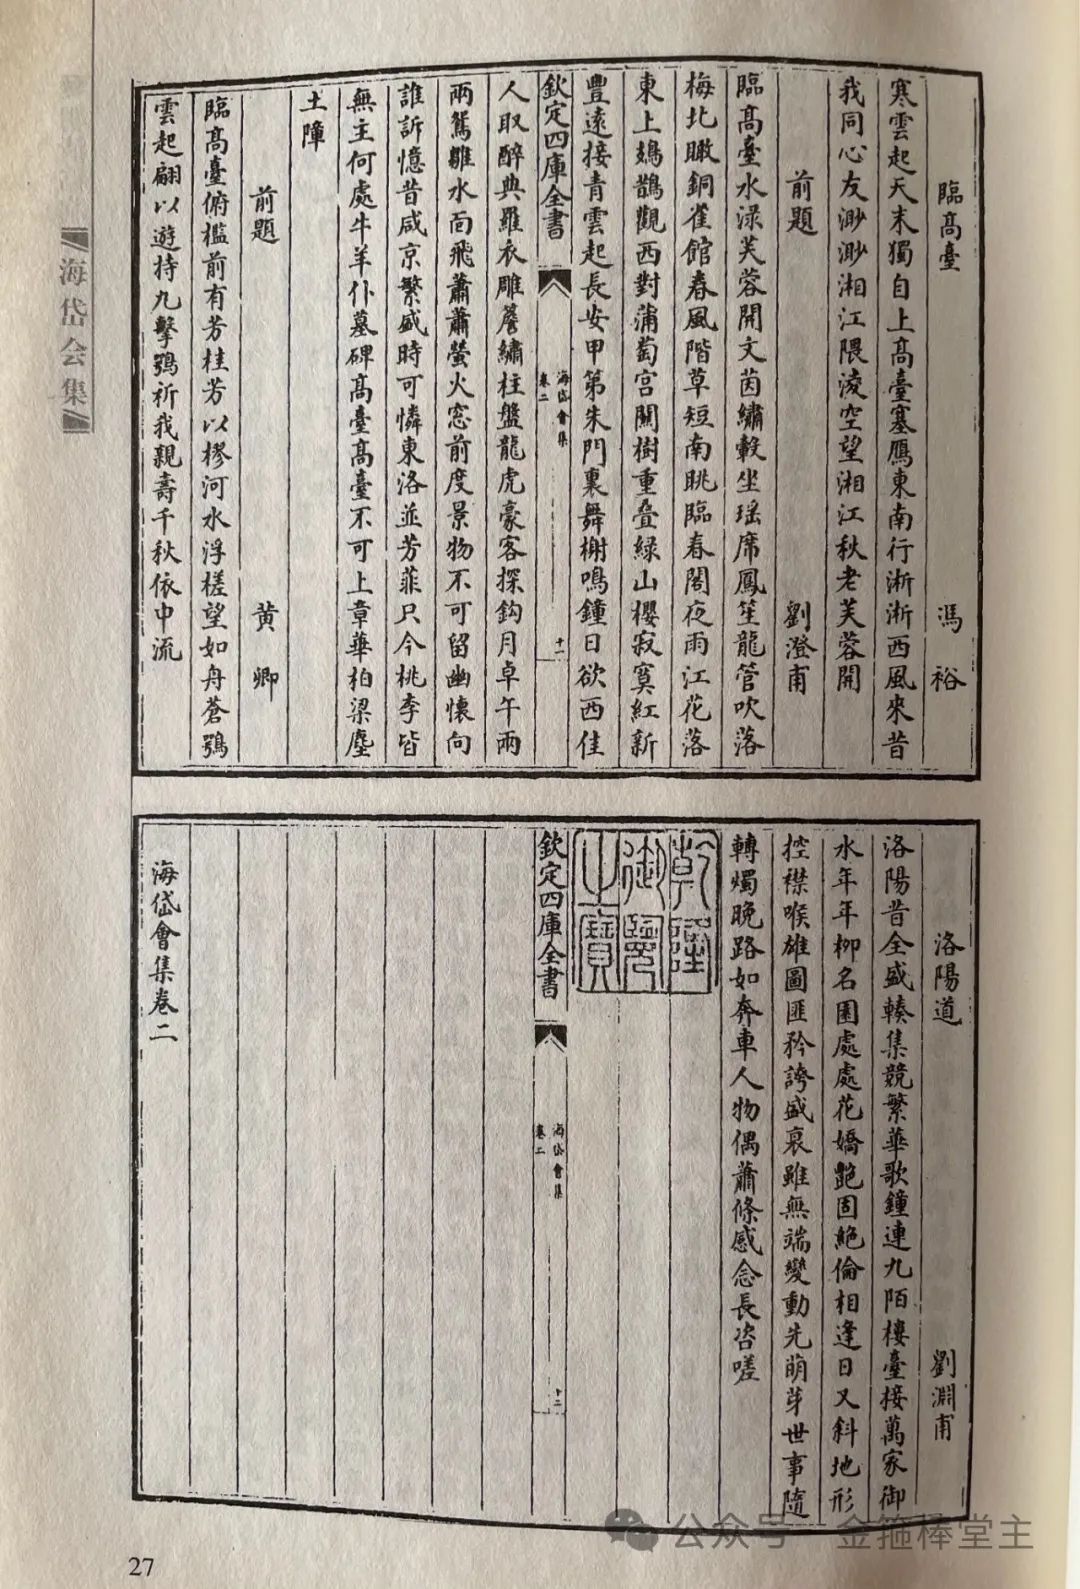 臨高臺　馮裕
寒雲起天末獨自上高臺塞鴈東南行淅淅西風來昔
我同心友渺渺湘江隈淩空望湘江秋老芙蓉開
前題　劉澄甫
臨高臺水淥芙蓉開文茵繡轂坐瑶席鳳笙龍管吹落
梅北瞰銅雀館春風階草短南眺臨春閣夜雨江花落
東上鳷鵲觀西對蒲萄宮關樹重叠緑山櫻寂寞紅新
豐遠接青雲起長安甲第朱門裏舞榭鳴鐘日欲西佳
欽定四庫全書
海岱會集
卷二
十一
人取醉典羅衣雕簷繡柱盤龍虎豪客探鈎月卓午兩
兩鴛雛水面飛蕭蕭螢火窓前度景物不可留幽懷向
誰訴憶昔咸京繁盛時可憐東洛並芳菲只今桃李皆
無主何處牛羊仆墓碑高臺高臺不可上章華柏梁塵
土障
前題　黄卿
臨高臺俯檻前有芳桂芳以樛河水浮槎望如舟蒼鴞
雲起翩以遊持九擊鴞祈我親壽千秋依中流
海岱会集
洛陽道　劉淵甫
洛陽昔全盛輳集競繁華歌鐘連九陌樓臺接萬家御
水年年柳名園處處花嬌艷固絶倫相逢日又斜地形
控襟喉雄圖匪矜誇盛衰雖無端變動先萌芽世事隨
轉燭晚路如奔車人物偶蕭條感念長咨嗟
乾隆御覽之寶
欽定四庫全書
海岱會集
卷二
十二
海岱會集卷二
27
公众号 金箍棒堂主